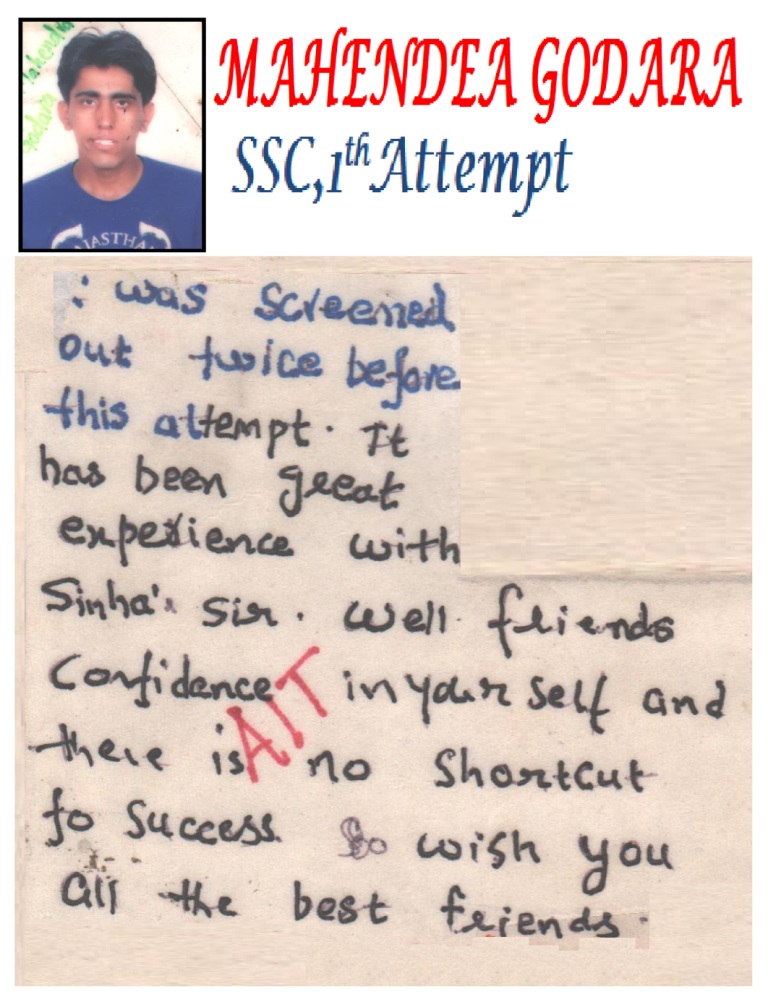 MAHENDEA GODARA
SSC,1th Attempt
Mahendra
Godara
JASTHA
: was screened
out twice before
this attempt. It
has been great
experience with
Sinha's sir. well friends
Confidence in your self and
AIT
there is no shortcut
to success. So wish you
all the best friends.